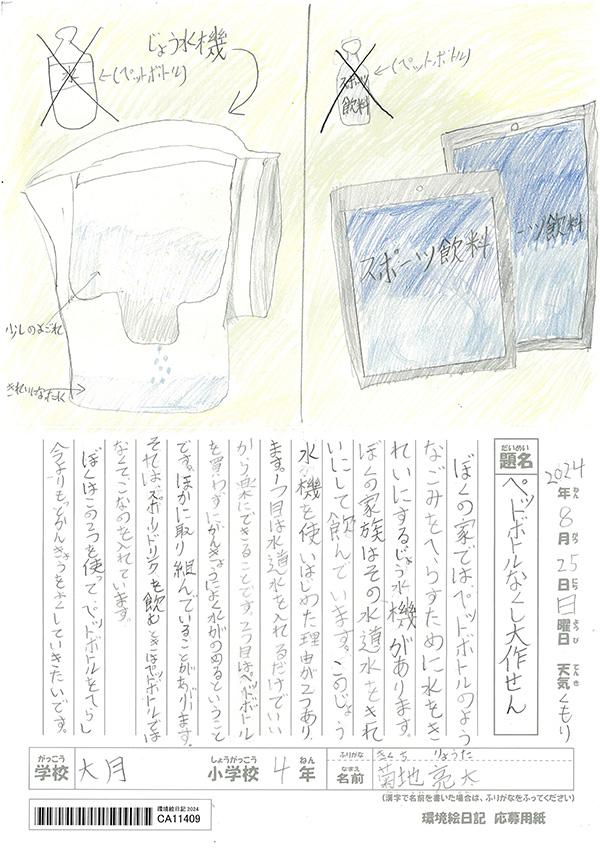 水
←(ペットボトル)
じょう水機
少しのよごれ
きれいになった水
スポーツ
飲料
←(ペットボトル)
スポーツ飲料
ーツ飲料
2024年8月25日日曜日 天気くもり
ねん がつ にち ようび てんき
だいめい
題名 ペッドボトルなくし大作せん
ぼくの家ではペッドボトルのよう
なごみをへらすために水をき
れいにするじょう水機があります。
ぼくの家族はその水道水をきれ
いにして飲んでいます。このじょう
水機を使いはじめた理由が2つあり
ます。1つ目は水道水を入れるだけでいい
から楽にできることです。2つ目はペッドボトル
を買わずにかんきょうによく水がのめるということ
です。ほかに取り組んでいることがあります。
それは、スポーツドリンクを飲むときはペッドボトルでは
なくてこなのを入れています。
ぼくはこの2つを使ってペッドボトルをへらし
今よりもどかんきょうをよくしていきたいです。
がっこう しょうがっこう ねん
学校 大月 小学校 4年
ふりがな きくち りょうた
なまえ
名前 菊地亮太
(漢字で名前を書いた場合は、ふりがなをふってください)
環境絵日記2024
CA11409
環境絵日記 応募用紙